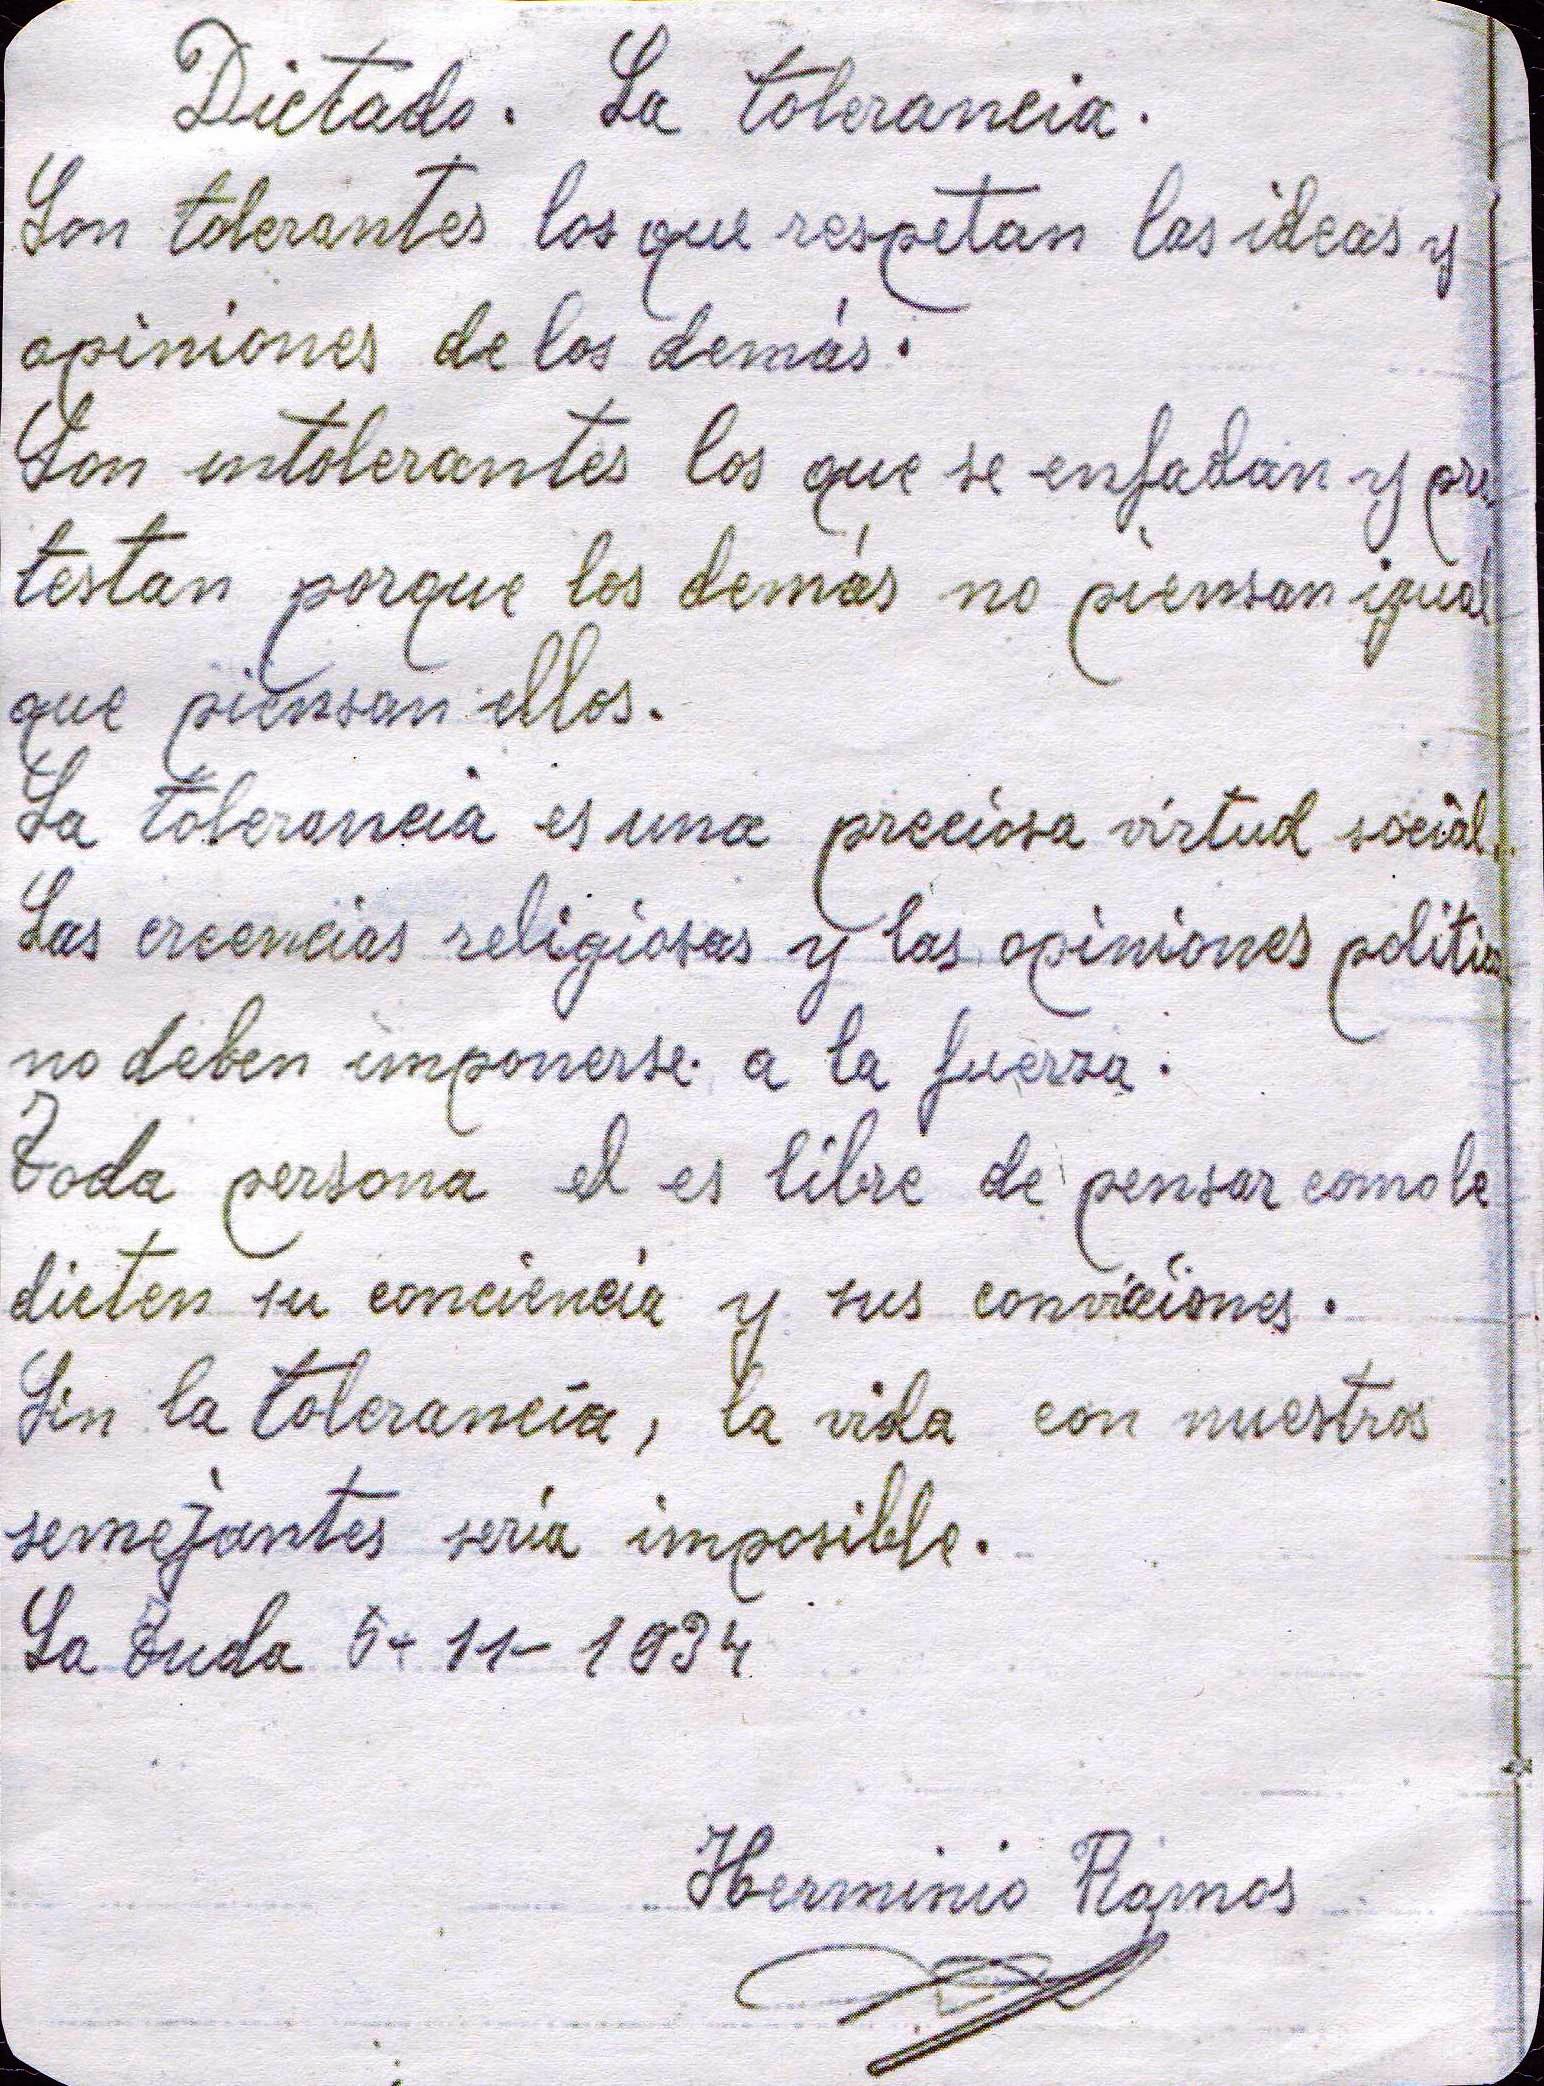 Dictado. La tolerancia.
Son tolerantes los que respetan las ideas y
opiniones de los demás.
Son intolerantes los que se enfadan y pro
testan porque los demás no piensan igual
que piensan ellos.
La tolerancia es una preciosa virtud social.
Las creencias religiosas y las opiniones politicas
no deben imponerse a la fuerza.
Toda persona el es libre de pensar como le
dicten su conciencia y sus convicciones.
Sin la tolerancia, la vida con nuestros
semejantes sería imposible.
La Tuda 5-11-1934
Herminio Ramos